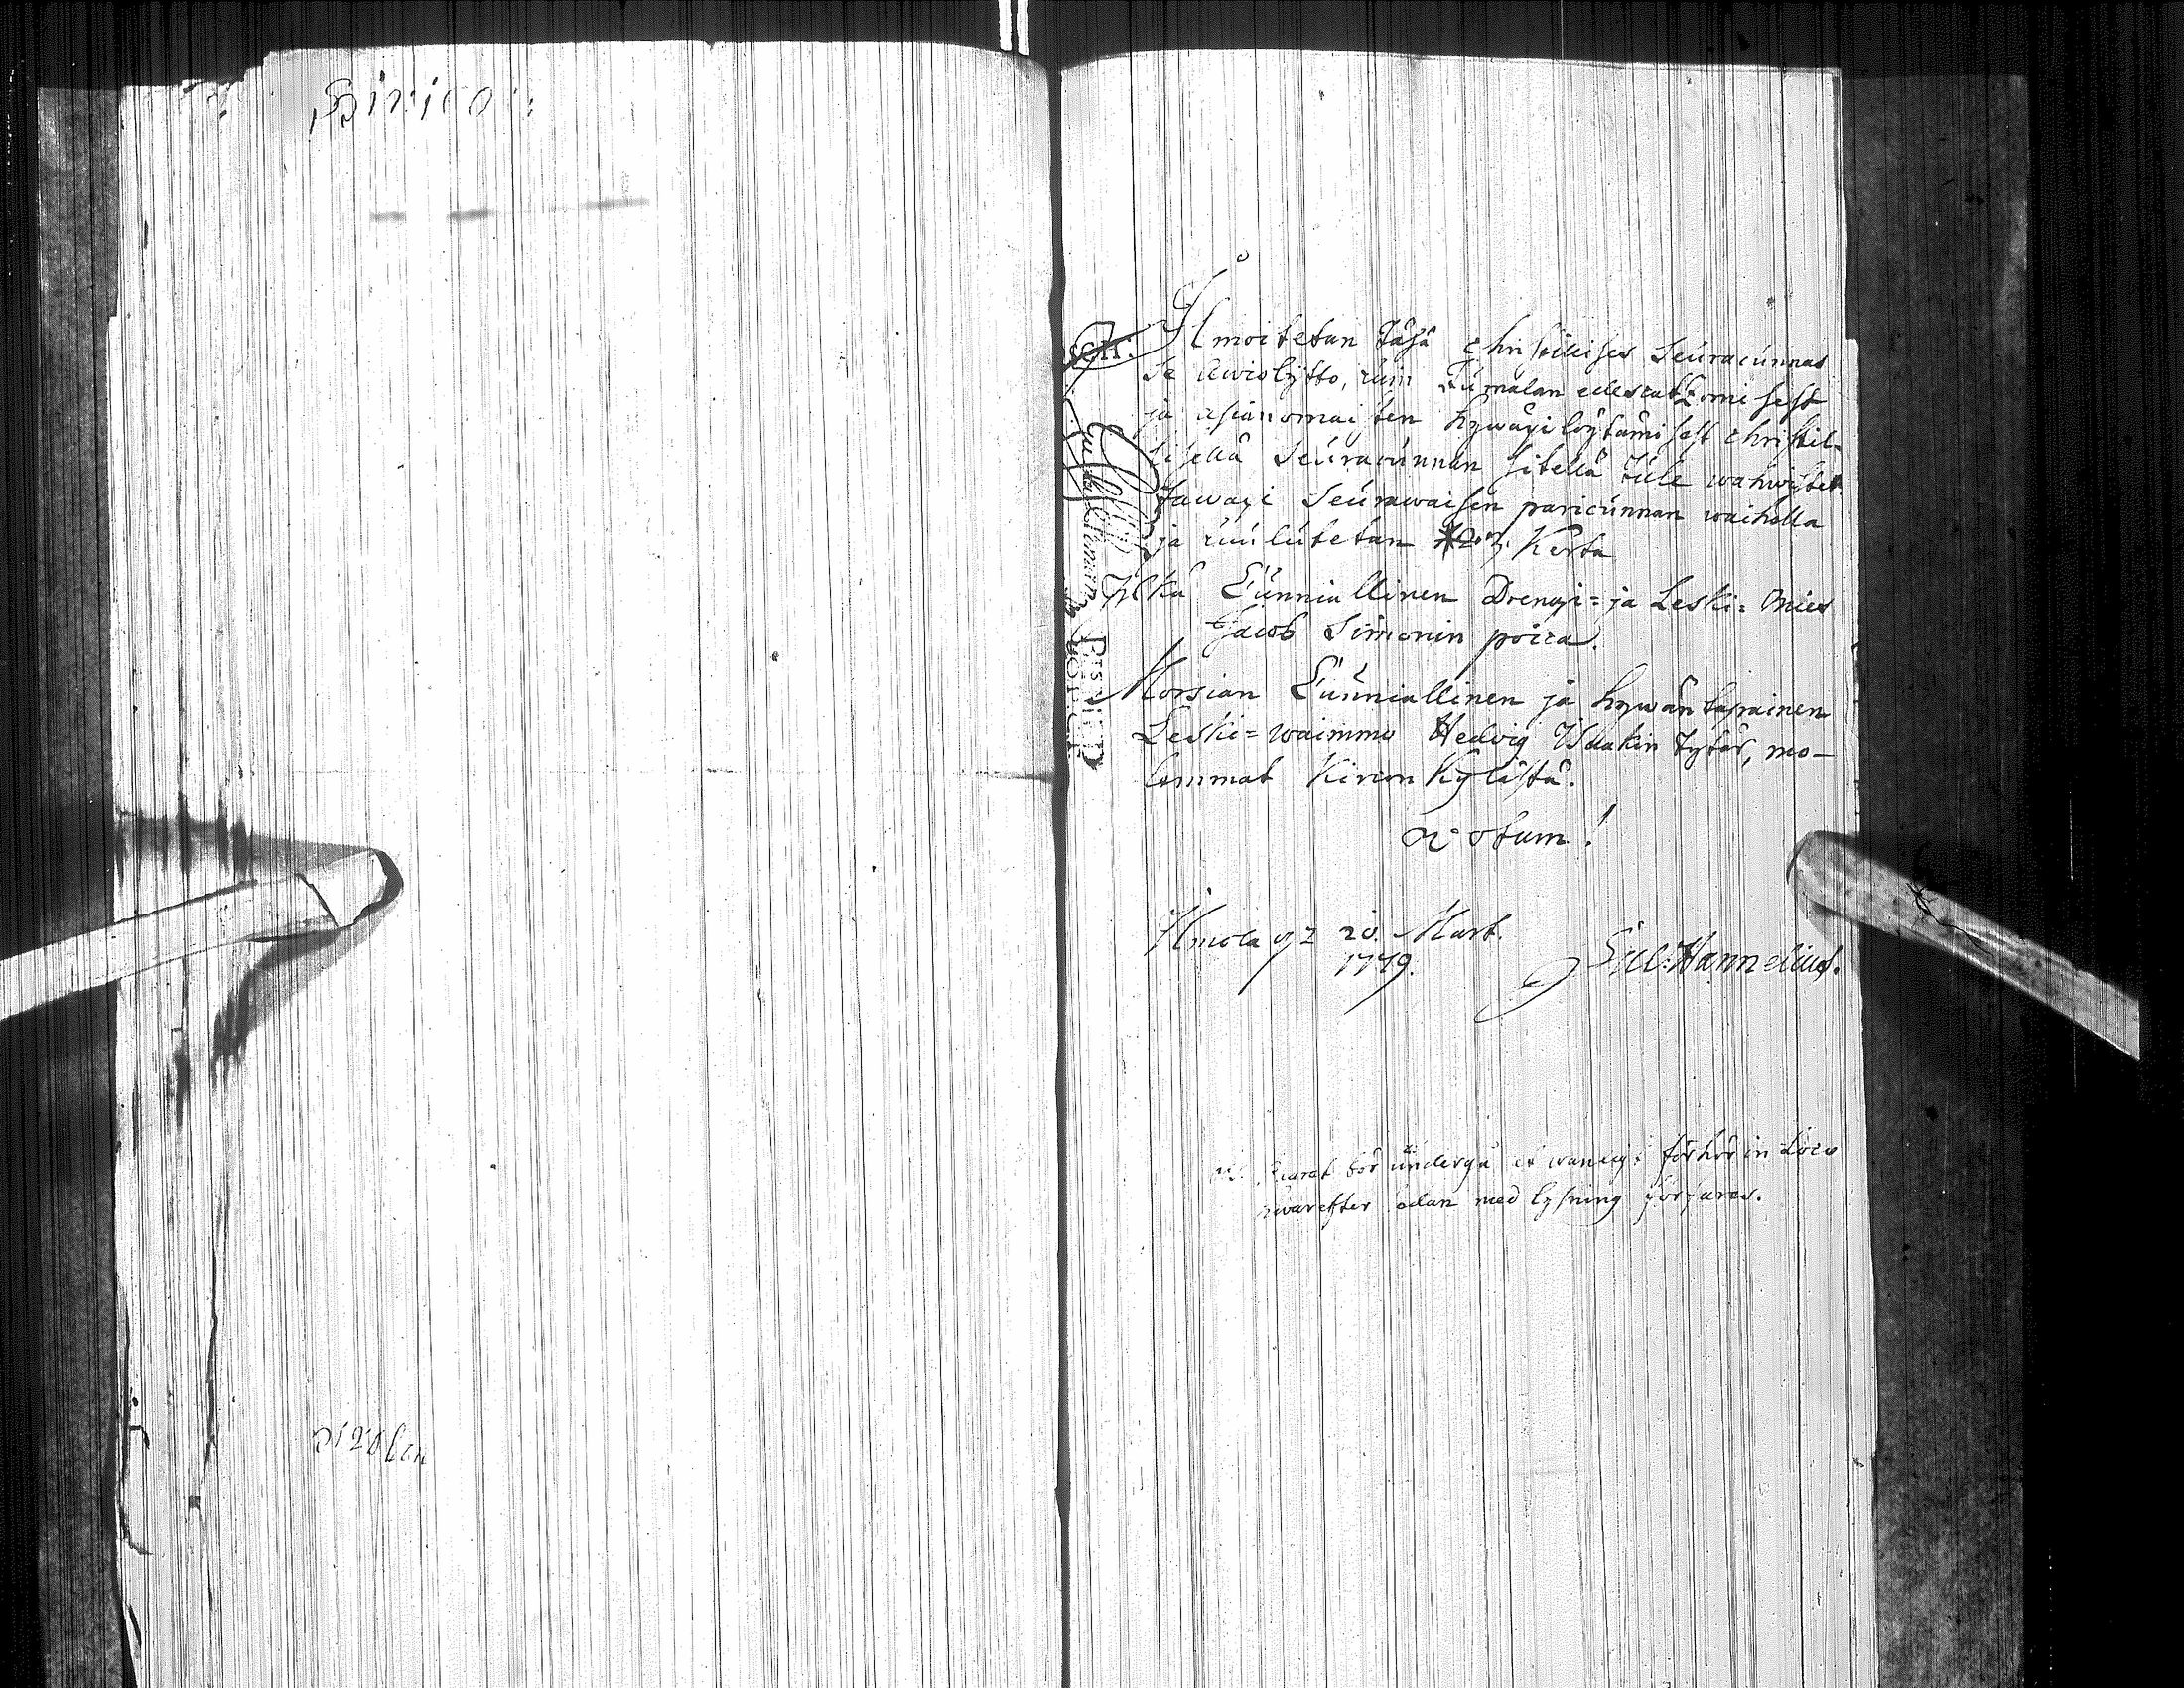 Ilmoitetan täsä Christillises Seuracunnas
se Awiokäytto, cuin Jumalan edescatzomisest
ja asianomaisten hywäxilöytämisest christil-
lisellä Seuracunnan sitellä tule wahwistet-
tawaxi Seurawaisen paricunnan waihella
ja cuulutetan 2:n Kerta
Ylkä Cunniallinen Drengi- ja Leski-mies
Jacob Simonin poica.
Morsian Cunniallinen ja hywäntapainen
Leski-waimmo Hedvig Isaakin tytär, mo-
lemmat Kircon Kyläštä.
Notum!
Ilmola 20. Mart.
1779.
Hannelius.
bör undergå förhör in Loco
hwarefter sedan med lysning förfares.